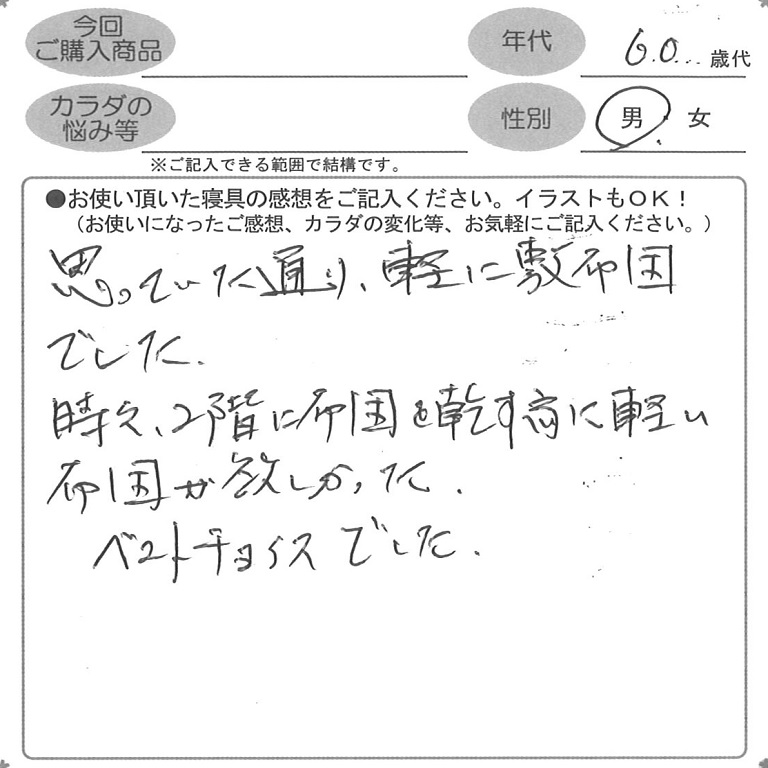 今回
ご購入商品
年代 60 歳代
カラダの
悩み等
性別 男・女
※ご記入できる範囲で結構です。
●お使い頂いた寝具の感想をご記入ください。イラストもOK!
(お使いになったご感想、カラダの変化等、お気軽にご記入ください。)
思っていた通り、軽に敷布団
でした.
時々、2階に布団を乾す為に軽い
布団が欲しかった.
ベストチョイスでした.